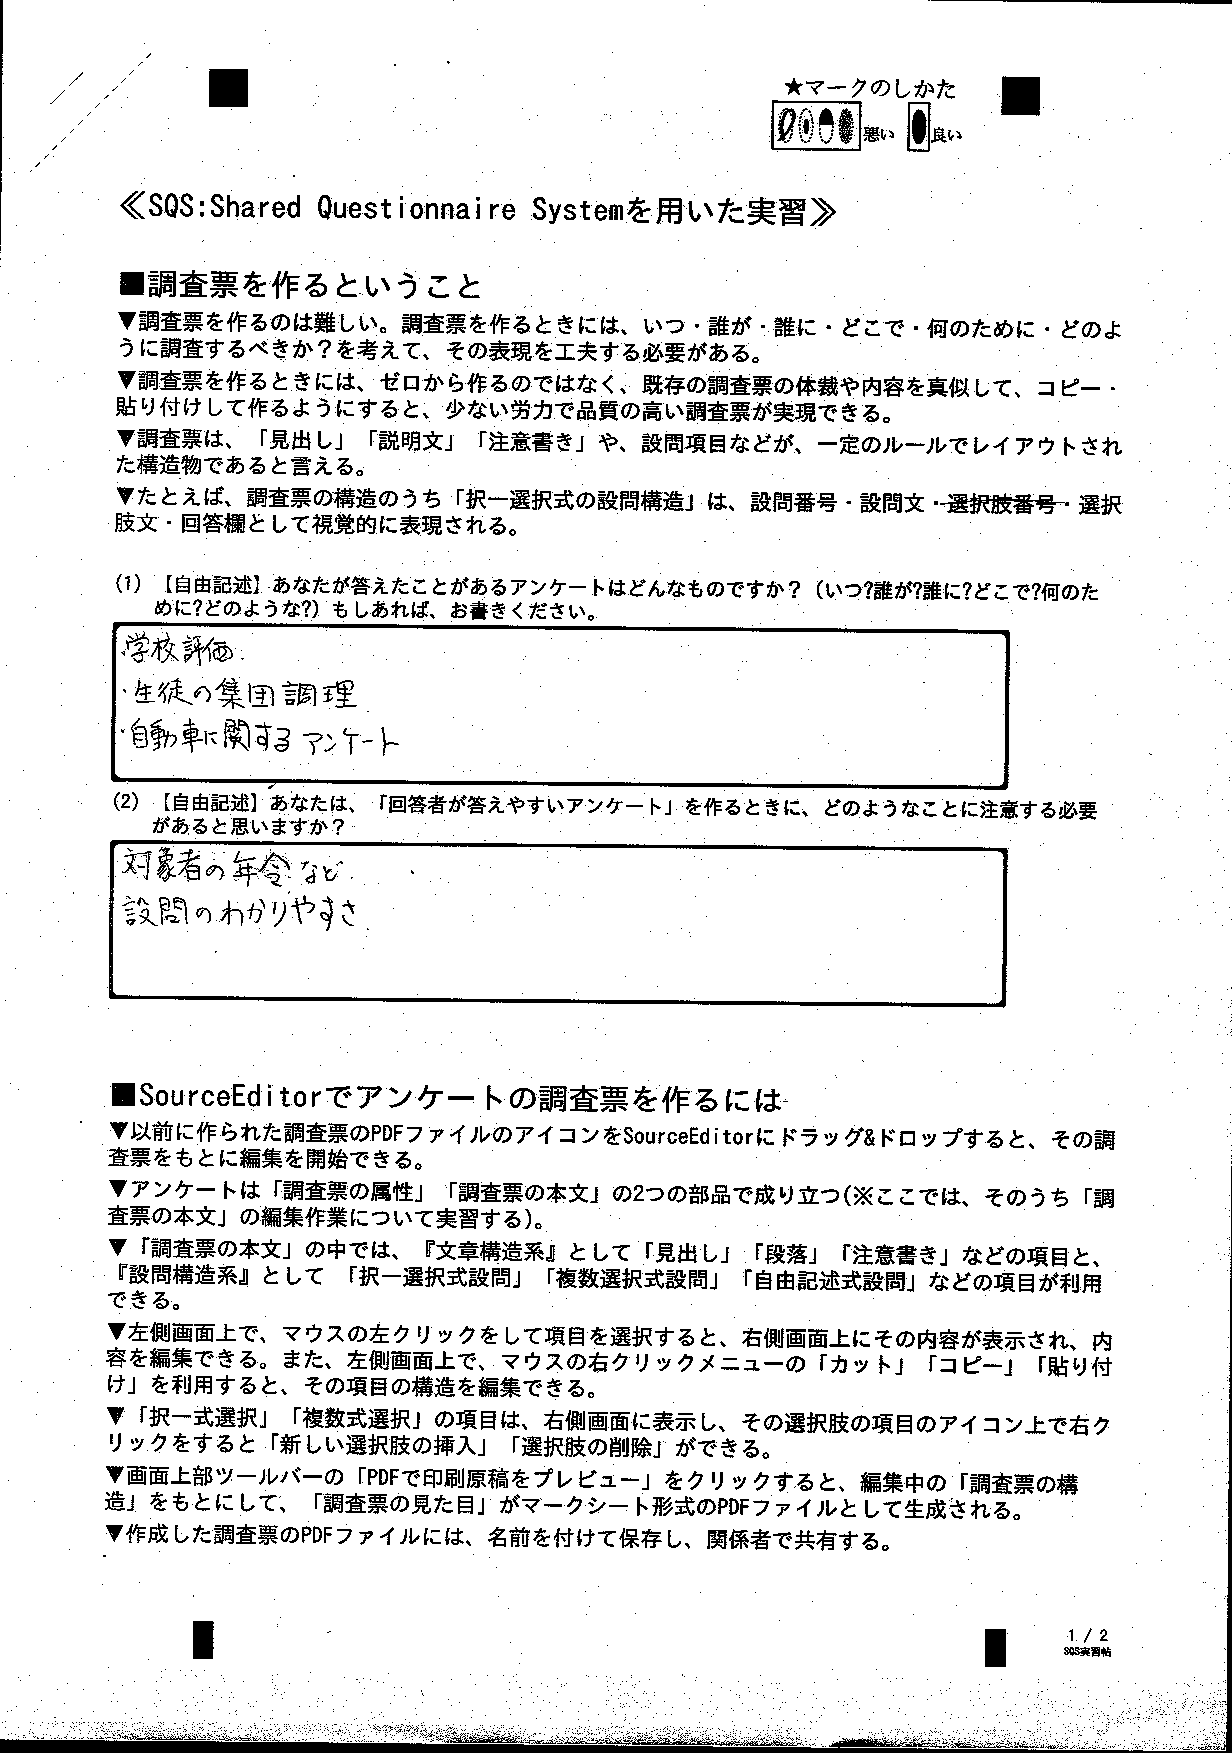 ★マークのしかた
悪い 良い
≪SQS:Shared Questionnaire Systemを用いた実習≫
■調査票を作るということ
▼調査票を作るのは難しい。調査票を作るときには、いつ・誰が・誰に・どこで・何のために・どのよ
うに調査するべきか？を考えて、その表現を工夫する必要がある。
▼調査票を作るときには、ゼロから作るのではなく、既存の調査票の体裁や内容を真似して、コピー・
貼り付けして作るようにすると、少ない労力で品質の高い調査票が実現できる。
▼調査票は、「見出し」「説明文」「注意書き」や、設問項目などが、一定のルールでレイアウトされ
た構造物であると言える。
▼たとえば、調査票の構造のうち「択一選択式の設問構造」は、設問番号・設問文・選択肢番号・選択
肢文・回答欄として視覚的に表現される。
(1) 【自由記述】あなたが答えたことがあるアンケートはどんなものですか？（いつ?誰が?誰に?どこで?何のた
めに?どのような?）もしあれば、お書きください。
・学校評価
・生徒の集団調理
・自動車に関するアンケート
(2) 【自由記述】あなたは、「回答者が答えやすいアンケート」を作るときに、どのようなことに注意する必要
があると思いますか？
対象者の年令など
設問のわかりやすさ
■SourceEditorでアンケートの調査票を作るには
▼以前に作られた調査票のPDFファイルのアイコンをSourceEditorにドラッグ&ドロップすると、その調
査票をもとに編集を開始できる。
▼アンケートは「調査票の属性」「調査票の本文」の2つの部品で成り立つ(※ここでは、そのうち「調
査票の本文」の編集作業について実習する)。
▼「調査票の本文」の中では、『文章構造系』として「見出し」「段落」「注意書き」などの項目と、
『設問構造系』として 「択一選択式設問」「複数選択式設問」「自由記述式設問」などの項目が利用
できる。
▼左側画面上で、マウスの左クリックをして項目を選択すると、右側画面上にその内容が表示され、内
容を編集できる。また、左側画面上で、マウスの右クリックメニューの「カット」「コピー」「貼り付
け」を利用すると、その項目の構造を編集できる。
▼「択一式選択」「複数式選択」の項目は、右側画面に表示し、その選択肢の項目のアイコン上で右ク
リックをすると「新しい選択肢の挿入」「選択肢の削除」ができる。
▼画面上部ツールバーの「PDFで印刷原稿をプレビュー」をクリックすると、編集中の「調査票の構
造」をもとにして、「調査票の見た目」がマークシート形式のPDFファイルとして生成される。
▼作成した調査票のPDFファイルには、名前を付けて保存し、関係者で共有する。
1 / 2
SQS実習帖